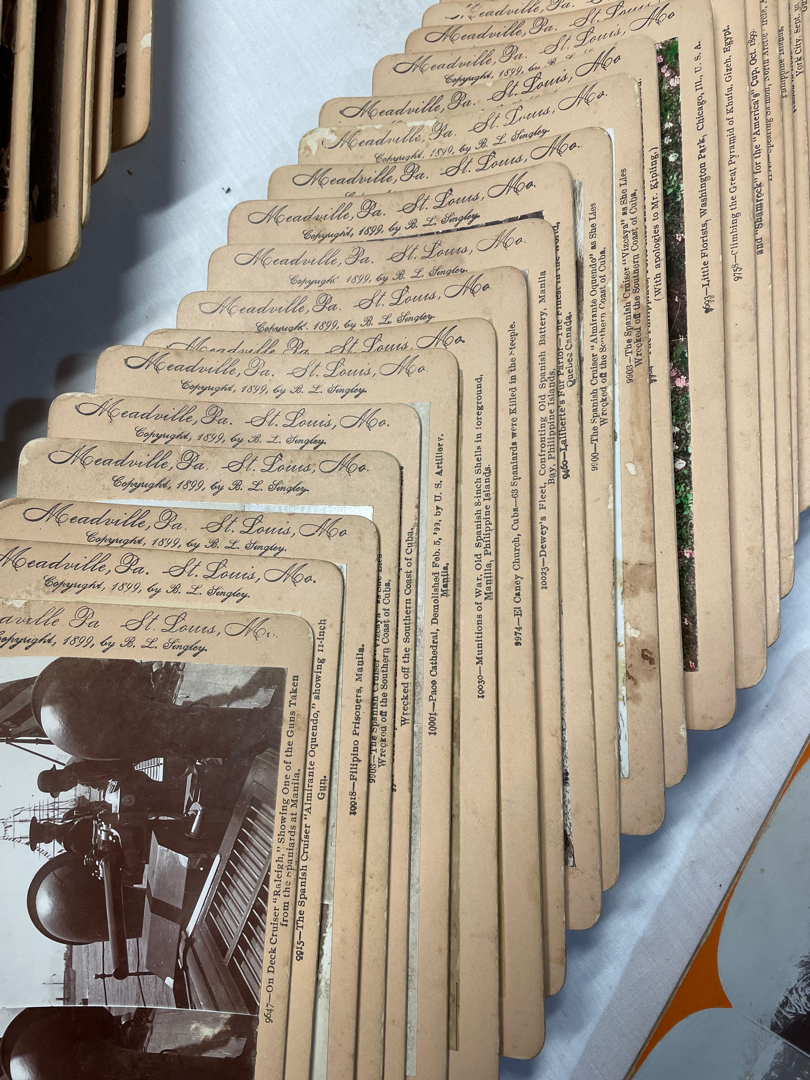 Meadville, Pa. St. Louis, Mo
Meadville, Pa. St. Louis, Mo
Copyright, 1899, by B. L.
Meadville, Pa. St. Louis, Mo
Meadville, Pa. St. Louis, Mo.
Copyright, 1899, by B. L. Singley.
Meadville, Pa. St. Louis, Mo.
Meadville, Pa. St. Louis, Mo.
Copyright, 1899, by B. L. Singley.
Meadville, Pa. St. Louis, Mo.
Copyright, 1899, by B. L. Singley.
Meadville, Pa. St. Louis, Mo
Copyright, 1899, by B. L. Singley.
Meadville, Pa. St. Louis, Mo.
Meadville, Pa. St. Louis, Mo.
Copyright, 1899, by B. L. Singley.
Meadville, Pa. St. Louis, Mo.
Copyright, 1899, by B. L. Singley.
Meadville, Pa. St. Louis, Mo
Copyright, 1899, by B. L. Singley.
Meadville, Pa. St. Louis, Mo
Copyright, 1899, by B. L. Singley.
Meadville, Pa. St. Louis, Mo.
Copyright, 1899, by B. L. Singley.
St. Louis,
1899, by B. L. Singley.
9647—On Deck Cruiser "Raleigh," Showing One of the Guns Taken
from the Spaniards at Manila.
9915—The Spanish Cruiser "Almirante Oquendo," showing 11-inch
Gun.
10018—Filipino Prisoners, Manila.
9903—The Spanish Cruiser "Vizcaya" as She Lies
Wrecked off the Southern Coast of Cuba.
Wrecked off the Southern Coast of Cuba.
10001—Paco Cathedral, Demolished Feb. 5, '99, by U. S. Artillery,
Manila.
10030—Munitions of War. Old Spanish 8-inch Shells in foreground,
Manila, Philippine Islands.
9974—El Caney Church, Cuba—63 Spaniards were Killed in the Steeple.
10023—Dewey's Fleet, Confronting Old Spanish Battery, Manila
Bay, Philippine Islands.
9460—Laliberte's Fur Parlor—The Finest in the World,
Quebec Canada.
9900—The Spanish Cruiser "Almirante Oquendo" as She Lies
Wrecked off the Southern Coast of Cuba.
9903—The Spanish Cruiser "Vizcaya" as She Lies
Wrecked off the Southern Coast of Cuba.
(With apologies to Mr. Kipling.)
Little Florists, Washington Park, Chicago, Ill., U. S. A.
9758—Climbing the Great Pyramid of Khufu, Gizeh, Egypt.
and "Shamrock" for the "America's" Cup, Oct. 1899.
Spearing Salmon, North
Philippine Islands.
York City, Sept. 30,